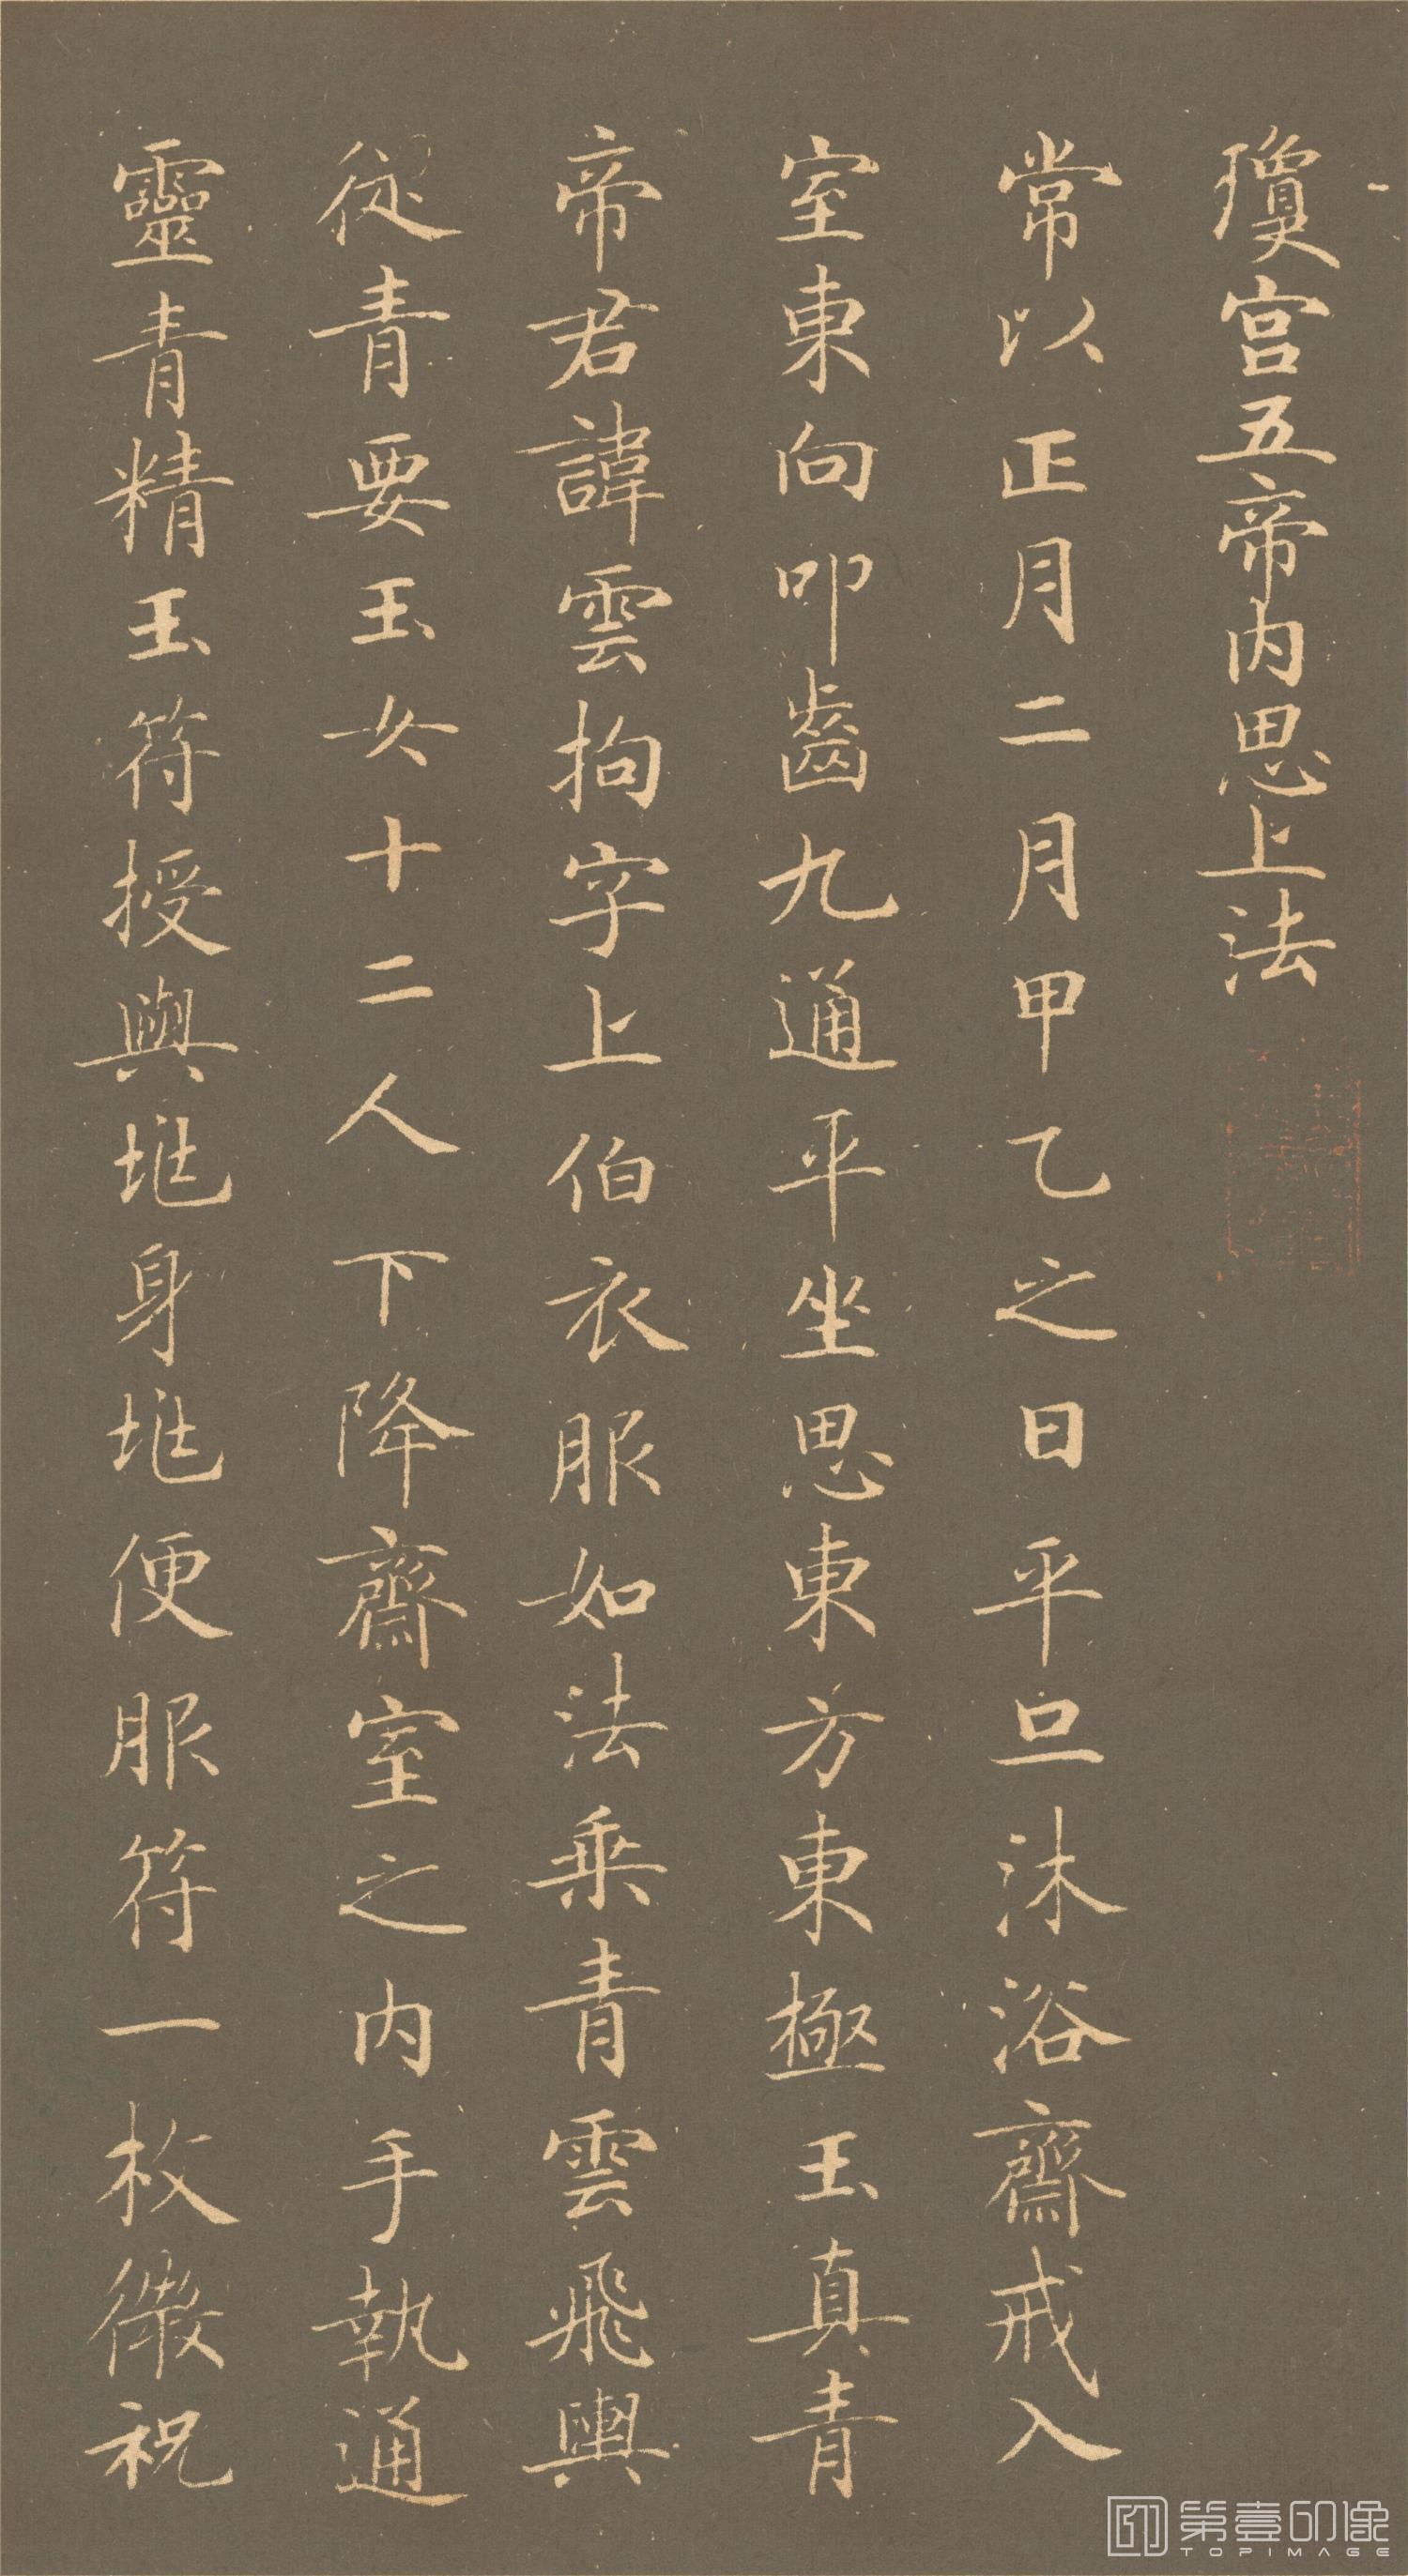 瓊宮五帝內思上法
常以正月二月甲乙之日平旦沐浴齋戒入
室東向叩齒九通平坐思東方東極玉真青
帝君諱雲拘字上伯衣服如法乘青雲飛輿
從青要玉女十二人下降齋室之內手執通
靈青精玉符授與兆身兆便服符一枚微祝
第壹印像
TOPIMAGE